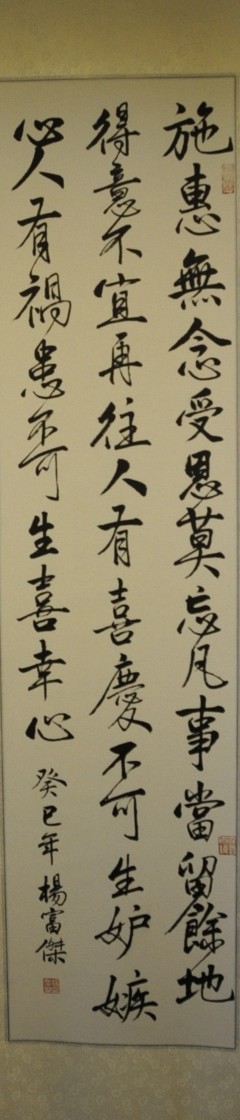 施惠無念受恩莫忘凡事當留餘地
得意不宜再往人有喜慶不可生妒嫉
心人有禍患不可生喜幸心
癸巳年楊富傑